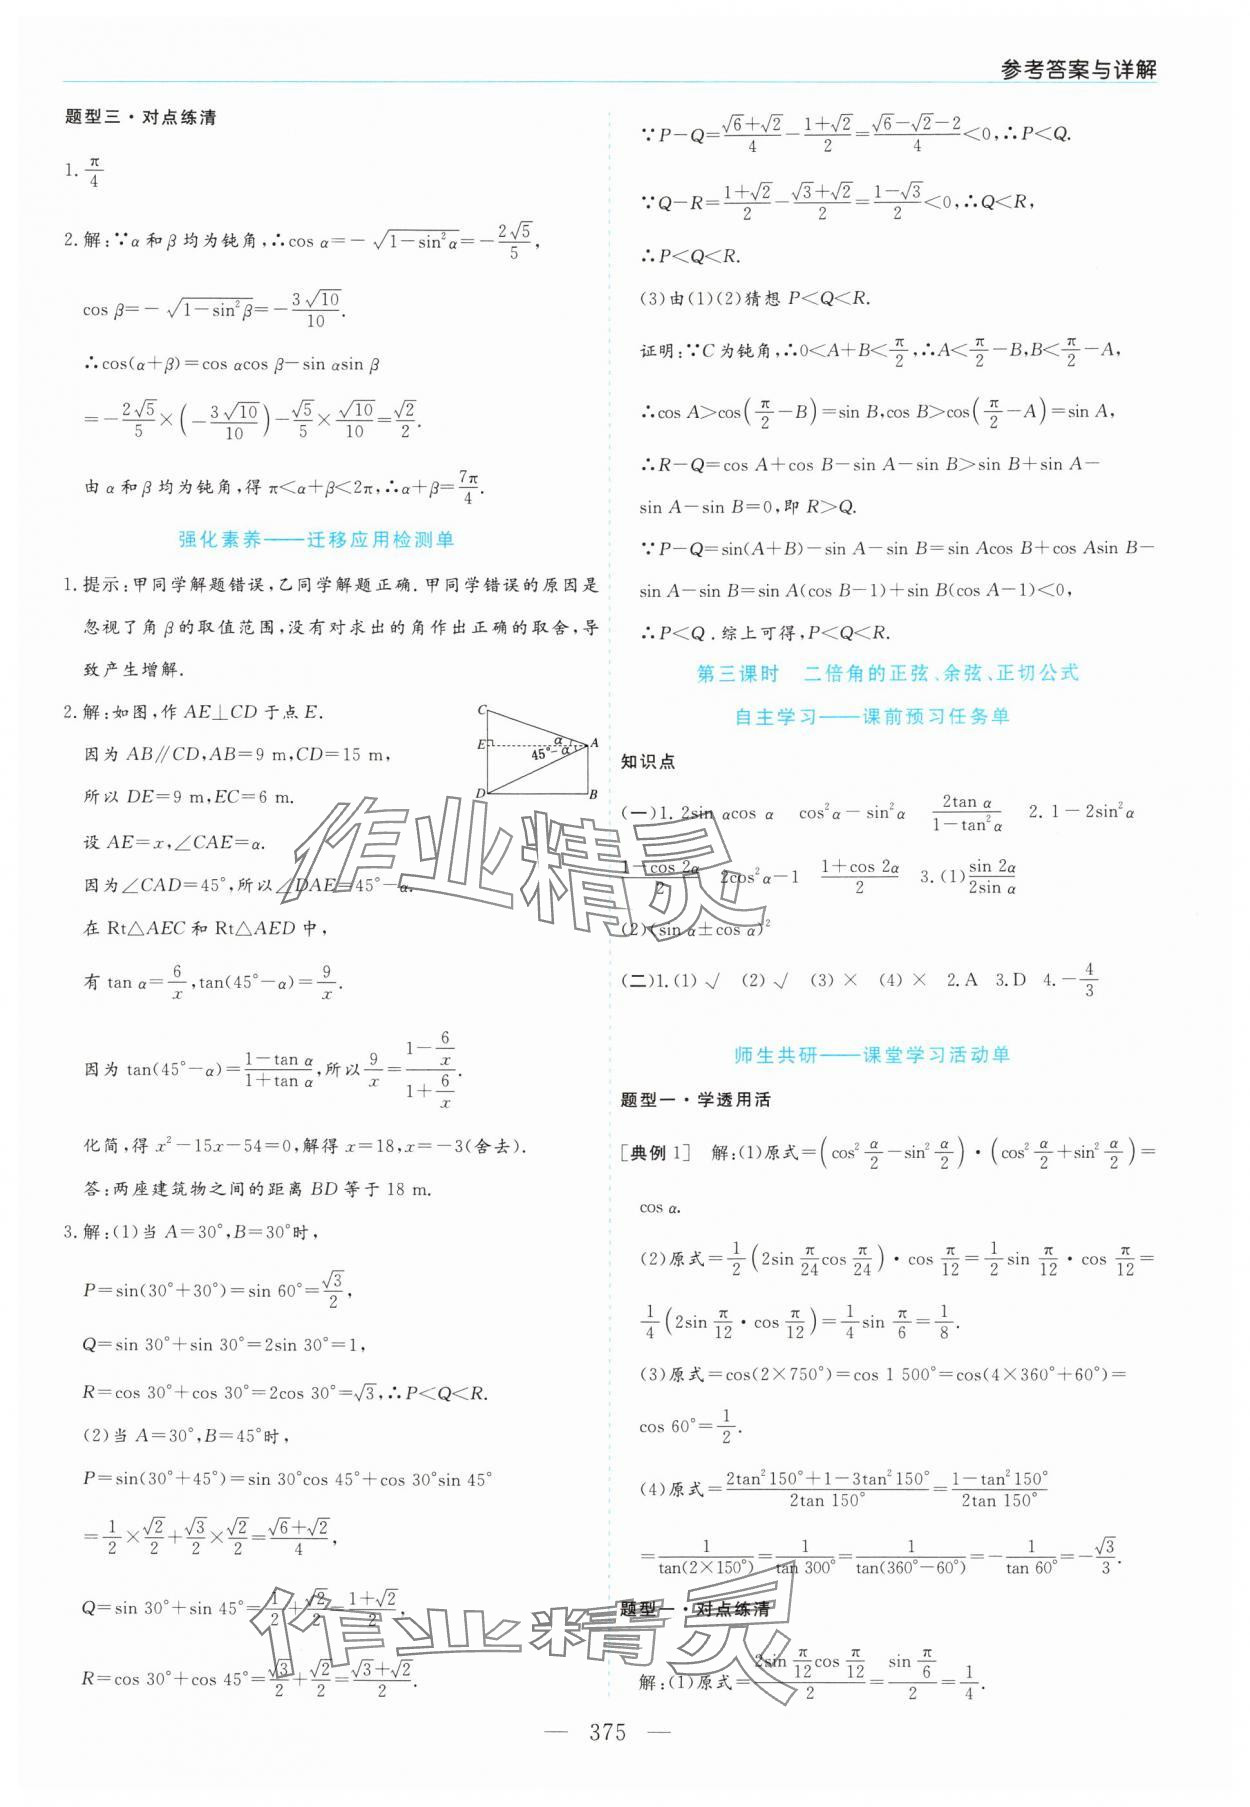 参考答案与详解
题型三·对点练清
1. π/4
2.解:∵α和β均为钝角,∴cos α=-√(1-sin²α)=-2√5/5,
cos β=-√(1-sin²β)=-3√10/10.
∴cos(α+β)=cos αcos β-sin αsin β
=-2√5/5×(-3√10/10)-√5/5×√10/10=√2/2.
由α和β均为钝角,得π<α+β<2π,∴α+β=7π/4.
强化素养——迁移应用检测单
1.提示:甲同学解题错误,乙同学解题正确.甲同学错误的原因是
忽视了角β的取值范围,没有对求出的角作出正确的取舍,导
致产生增解.
2.解:如图,作AE⊥CD于点E.
因为AB∥CD,AB=9 m,CD=15 m,
所以DE=9 m,EC=6 m.
设AE=x,∠CAE=α.
因为∠CAD=45°,所以∠DAE=45°-α.
在Rt△AEC和Rt△AED中,
有tan α=6/x,tan(45°-α)=9/x.
因为tan(45°-α)=(1-tan α)/(1+tan α),所以9/x=(1-6/x)/(1+6/x).
化简,得x²-15x-54=0,解得x=18,x=-3(舍去).
答:两座建筑物之间的距离BD等于18 m.
C
E
α
A
45°-α
D
B
3.解:(1)当A=30°,B=30°时,
P=sin(30°+30°)=sin 60°=√3/2,
Q=sin 30°+sin 30°=2sin 30°=1,
R=cos 30°+cos 30°=2cos 30°=√3,∴P<Q<R.
(2)当A=30°,B=45°时,
P=sin(30°+45°)=sin 30°cos 45°+cos 30°sin 45°
=1/2×√2/2+√3/2×√2/2=(√6+√2)/4,
Q=sin 30°+sin 45°=1/2+√2/2=(1+√2)/2,
R=cos 30°+cos 45°=√3/2+√2/2=(√3+√2)/2.
∵P-Q=(√6+√2)/4-(1+√2)/2=(√6-√2-2)/4<0,∴P<Q.
∵Q-R=(1+√2)/2-(√3+√2)/2=(1-√3)/2<0,∴Q<R,
∴P<Q<R.
(3)由(1)(2)猜想P<Q<R.
证明:∵C为钝角,∴0<A+B<π/2,∴A<π/2-B,B<π/2-A,
∴cos A>cos(π/2-B)=sin B,cos B>cos(π/2-A)=sin A,
∴R-Q=cos A+cos B-sin A-sin B>sin B+sin A-
sin A-sin B=0,即R>Q.
∵P-Q=sin(A+B)-sin A-sin B=sin Acos B+cos Asin B-
sin A-sin B=sin A(cos B-1)+sin B(cos A-1)<0,
∴P<Q.综上可得,P<Q<R.
第三课时 二倍角的正弦、余弦、正切公式
自主学习——课前预习任务单
知识点
(一)1. 2sin αcos α cos²α-sin²α 2tan α/(1-tan²α) 2. 1-2sin²α
(1-cos 2α)/2 2cos²α-1 (1+cos 2α)/2 3.(1)sin 2α/2sin α
(2)(sin α±cos α)²
(二)1.(1)√ (2)√ (3)× (4)× 2.A 3.D 4.-4/3
师生共研——课堂学习活动单
题型一·学透用活
[典例1] 解:(1)原式=(cos²α/2-sin²α/2)·(cos²α/2+sin²α/2)=
cos α.
(2)原式=1/2(2sin π/24 cos π/24)·cos π/12=1/2 sin π/12·cos π/12=
1/4(2sin π/12·cos π/12)=1/4 sin π/6=1/8.
(3)原式=cos(2×750°)=cos 1 500°=cos(4×360°+60°)=
cos 60°=1/2.
(4)原式=(2tan²150°+1-3tan²150°)/(2tan 150°)=(1-tan²150°)/(2tan 150°)
=1/tan(2×150°)=1/tan 300°=1/tan(360°-60°)=-1/tan 60°=-√3/3.
题型一·对点练清
解:(1)原式=(2sin π/12 cos π/12)/2=(sin π/6)/2=1/4.
— 375 —
作业精灵
作业精灵